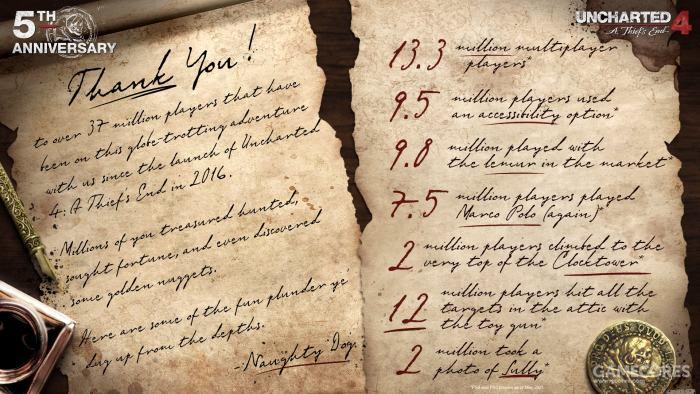 5TH
ANNIVERSARY
UNCHARTED 4
A Thief's End
Thank You!
to over 37 million players that have
been on this globe-trotting adventure
with us since the launch of Uncharted
4: A Thief's End in 2016.
Millions of you treasured hunted,
sought fortune, and even discovered
some golden nuggets.
Here are some of the fun plunder ye
dug up from the depths.
-Naughty Dog.
13.3 million multiplayer
players*
9.5 million players used
an accessibility option*
9.8 million played with
the lemur in the market*
7.5 million players played
Marco Polo (again)*
2 million players climbed to the
very top of the Clocktower*
12 million players hit all the
targets in the attic with
the toy gun*
2 million took a
photo of Sully*
GAMECORES